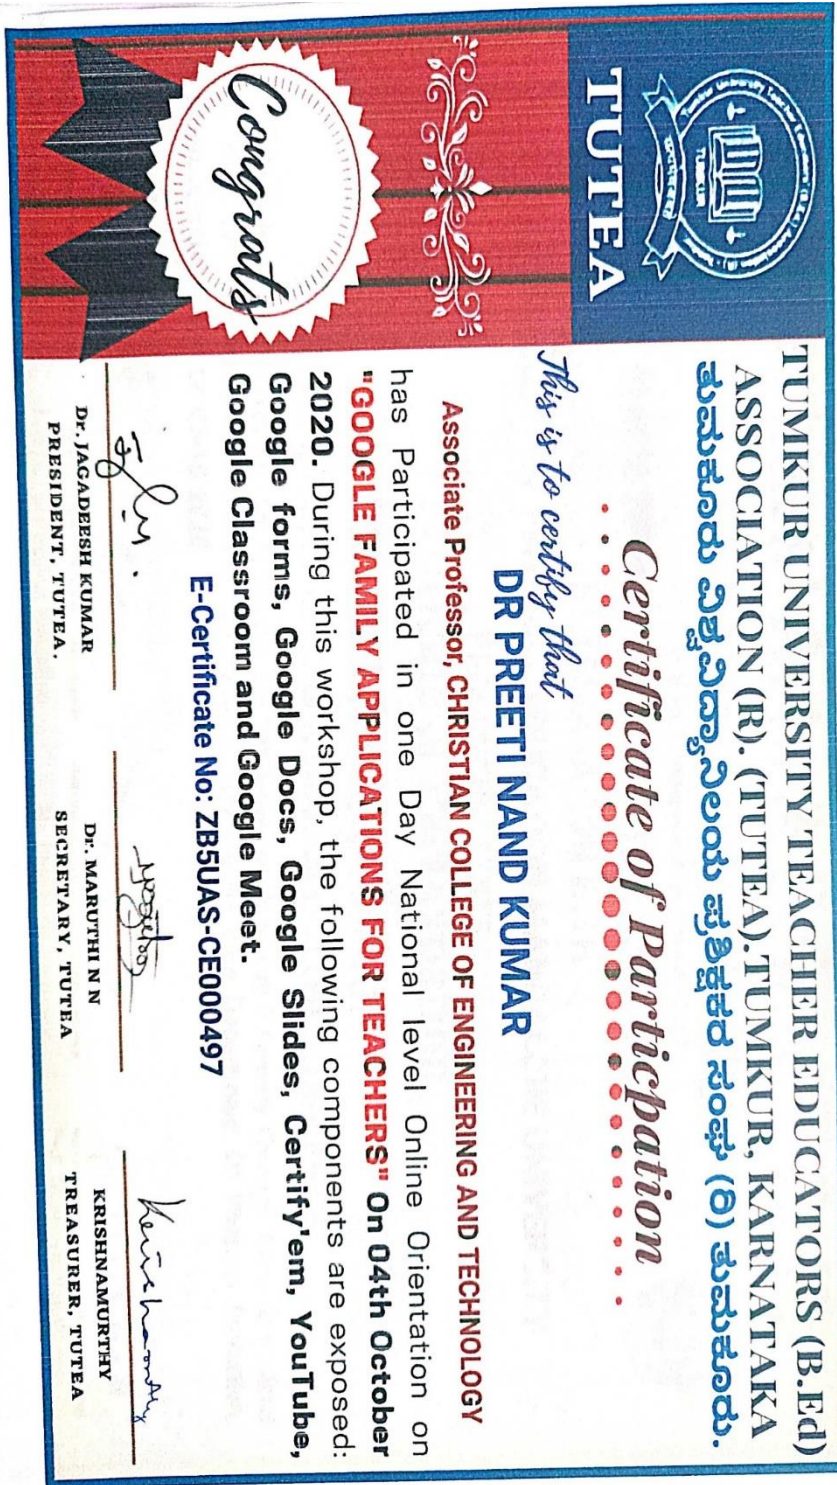 TUMKUR UNIVERSITY TEACHER EDUCATORS (B.Ed)
ASSOCIATION (R). (TUTEA).TUMKUR, KARNATAKA
ತುಮಕೂರು ವಿಶ್ವವಿದ್ಯಾನಿಲಯ ಪ್ರಶಿಕ್ಷಕರ ಸಂಘ (ರಿ) ತುಮಕೂರು.
TUMKUR
TUTEA
Congrats
Certificate of Particpation
This is to certify that
DR PREETI NAND KUMAR
Associate Professor, CHRISTIAN COLLEGE OF ENGINEERING AND TECHNOLOGY
has Participated in one Day National level Online Orientation on
"GOOGLE FAMILY APPLICATIONS FOR TEACHERS" On 04th October
2020. During this workshop, the following components are exposed:
Google forms, Google Docs, Google Slides, Certify'em, YouTube,
Google Classroom and Google Meet.
E-Certificate No: ZB5UAS-CE000497
Krishnamurthy
Dr. JAGADEESH KUMAR
PRESIDENT, TUTEA.
Dr. MARUTHI N N
SECRETARY, TUTEA
KRISHNAMURTHY
TREASURER, TUTEA